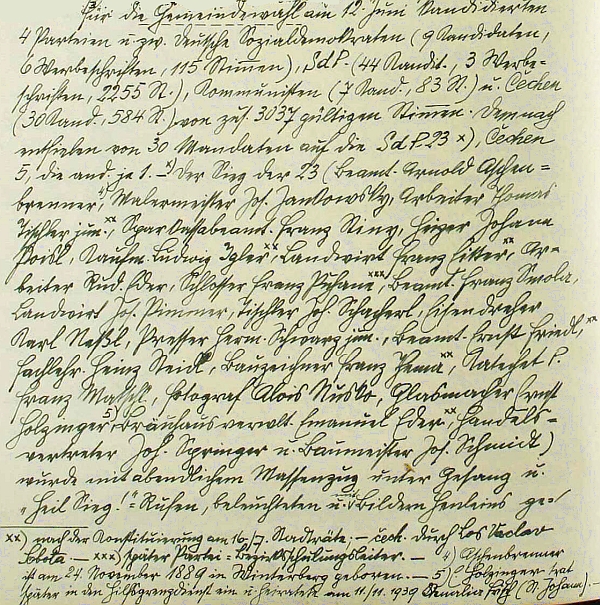 Für die Gemeindewahl am 12. Juni kandidierten
4 Parteien u. zw. deutsche Sozialdemokraten (9 Kandidaten,
6 Werbeschriften, 115 Stimmen), SdP. (44 Kandit., 3 Werbe-
schriften, 2255 St.), Kommunisten (7 Kand., 83 St.) u. Čechen
(30 Kand., 584 St.) von zus. 3037 gültigen Stimmen. Demnach
entfielen von 30 Mandaten auf die SdP. 23 x), Čechen
5, die and. je 1. – x) Der Sieg der 23 (Beamt. Arnold Aschen=
brenner 4), Malermeister Jos. Jankowsky, Arbeiter Thomas
Tischler jun. xx, Sparkassabeamt. Franz Riny, Heizer Johann
Poisl, Kaufm. Ludwig Igler xx, Landwirt Franz Fitter xx, Ar-
beiter Rud. Eder, Schlosser Franz Puhane xxx, Beamt. Franz Smola,
Landwirt Jos. Pimmer, Tischler Joh. Schacherl, Eisendreher
Karl Neßl, Presser Herm. Schwarz jun., Beamt. Ernst Friedl, xx
Fachlehr. Heinz Neidl, Bauzeichner Franz Thema xx, Katechet P.
Franz Matschl, Fotograf Alois Nusko, Glasmacher Ernst
Holzinger 5), Bräuhausverwalt. Emanuel Eder xx, Handels-
vertreter Joh. Springer u. Baumeister Jos. Schmidt)
wurde mit abendlichem Massenzug unter Gesang u.
„Heil Sieg!“-Rufen, beleuchteten u. mit Bildern Henleins ge-/
xx) nach der Konstituierung am 16./7. Stadträte. – čech. durch Los Václav
Sebota. – xxx) später Partei=Bezirksschulungsleiter. – 4) Aschenbrenner
ist am 24. November 1889 in Winterberg geboren. – 5) Holzinger trat
später in den Hilfsgrenzdienst ein u. heiratete am 11./11. 1939 Amalia Fritz (St. Johann). –